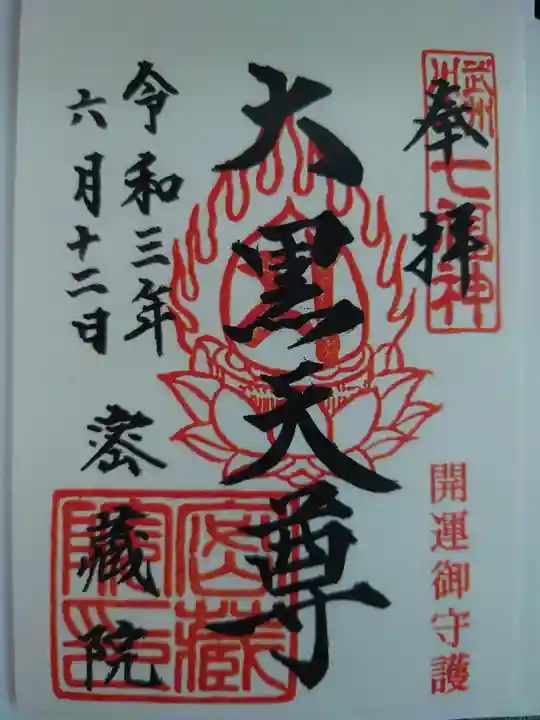 奉拝
大黒天尊
令和三年
六月十二日
密蔵院
開運御守護
七福神